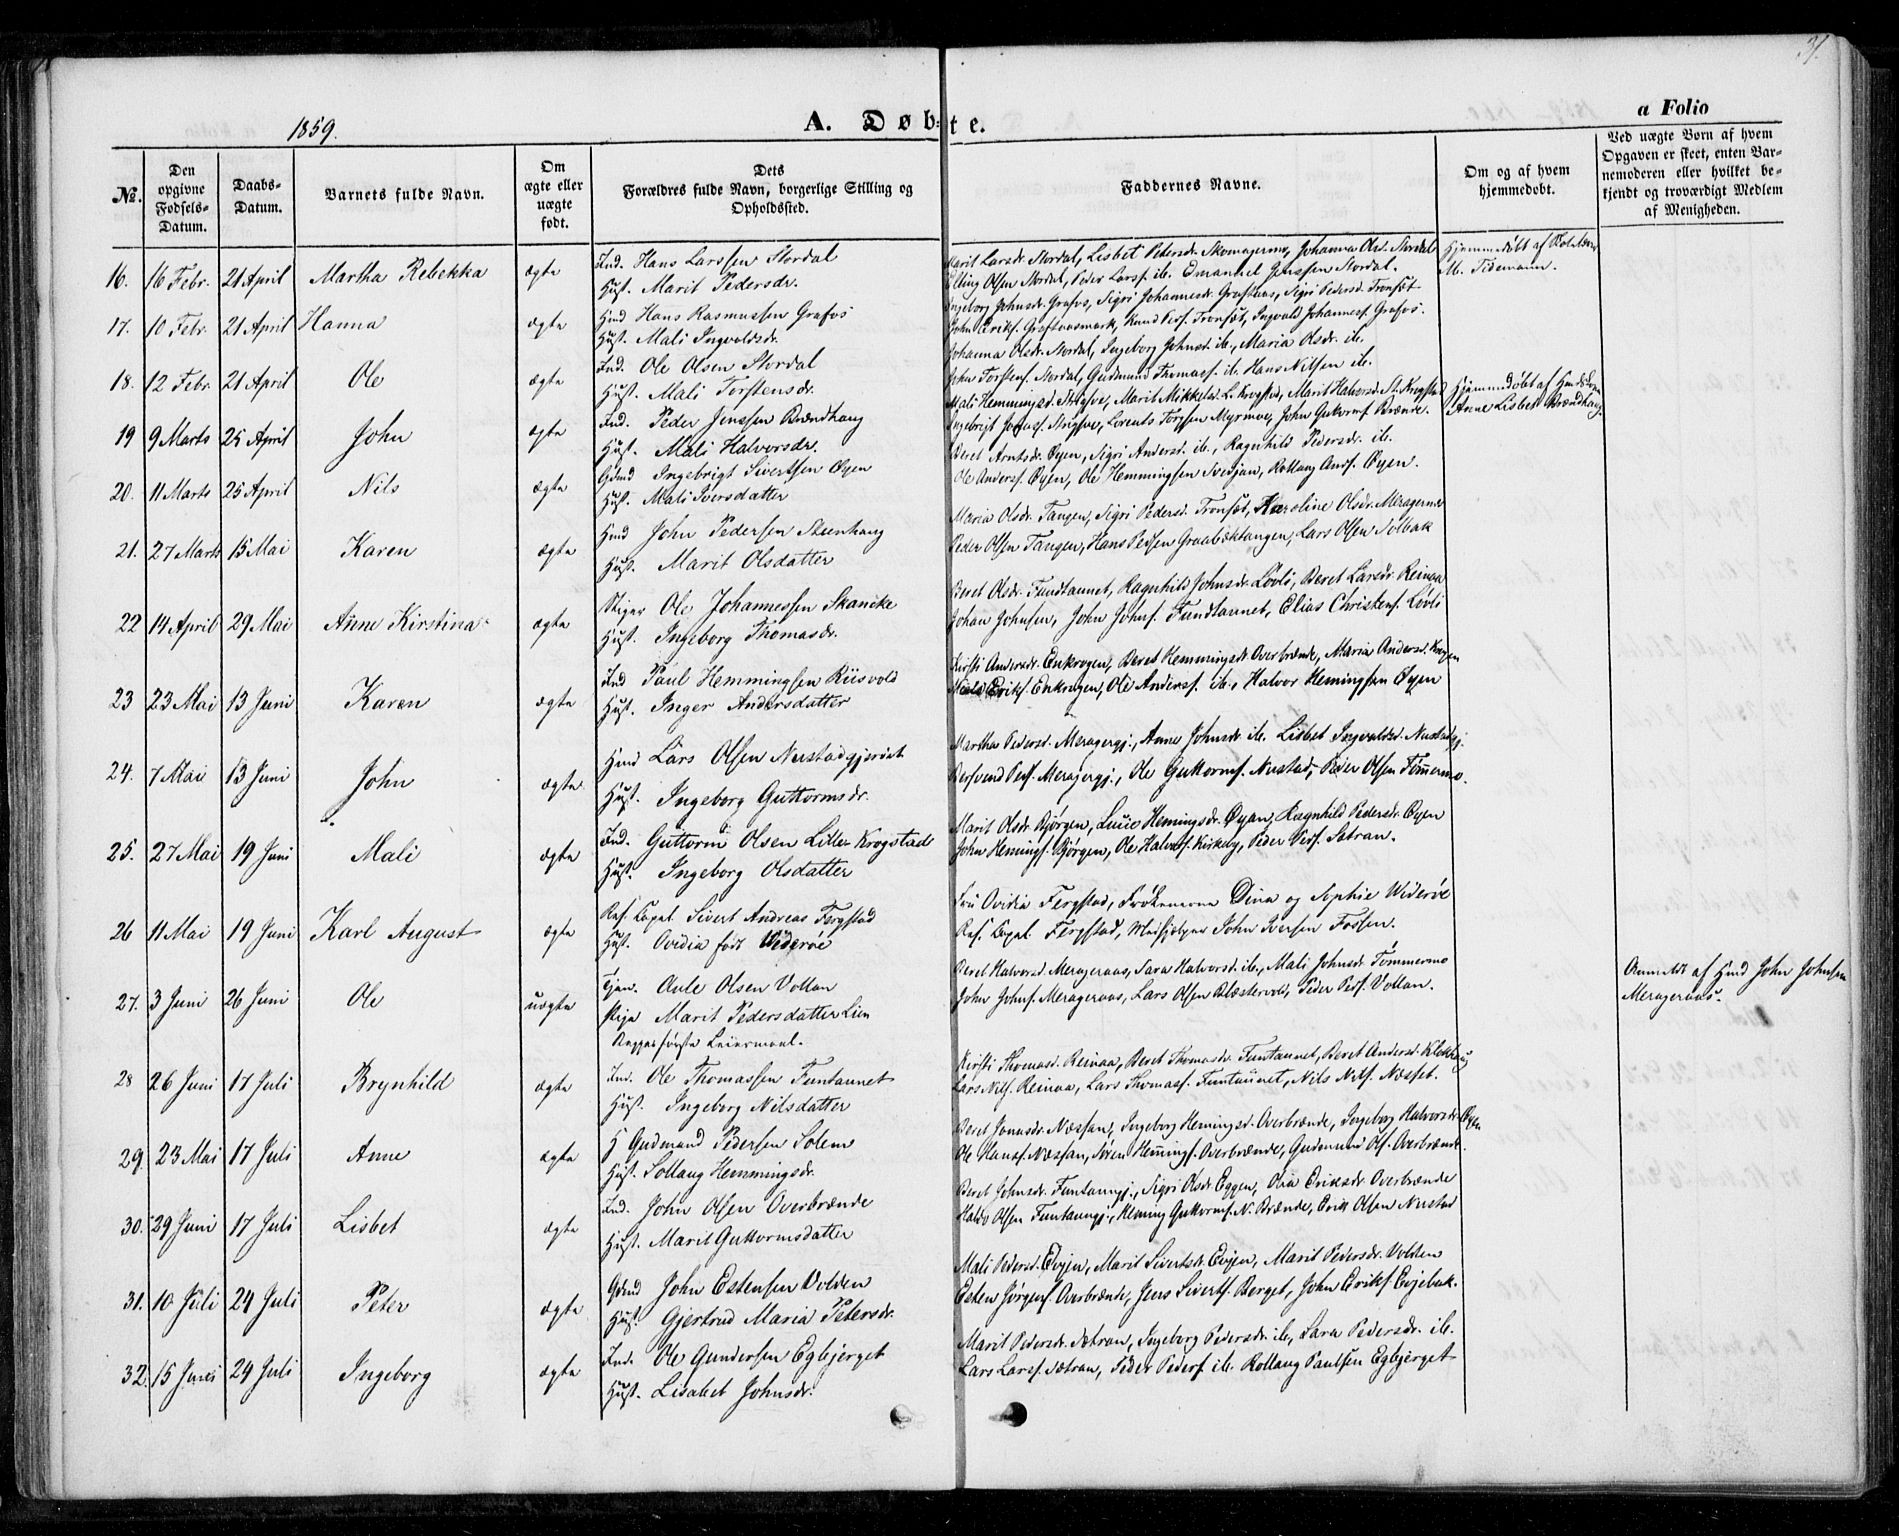 31.
1859.
A. Døbte.
a Folio
№.
Den opgivne Fødsels-Datum.
Daabs-Datum.
Barnets fulde Navn.
Om ægte eller uægte født.
Dets Forældres fulde Navn, borgerlige Stilling og Opholdssted.
Faddernes Navne.
Om og af hvem hjemmedøbt.
Ved uægte Børn af hvem Opgaven er skeet, enten Barnemoderen eller hvilket bekjendt og troværdigt Medlem af Menigheden.
16. 16 Febr. 21 April Martha Rebekka ægte Ind. Hans Larssen Stordal
Hust. Marit Pedersdr.
Marit Larsdr. Stordal, Lisbet Pedersdr. Skomagermo, Johanna Olsd. Stordal
Elling Olsen Stordal, Peder Larss. ib. Emanuel Jenssen Stordal.
Hjemmedøbt af
M. Tidemann.
17. 10 Febr. 21 April Hanna ægte Hmd Hans Rasmussen Grafos
Hust. Mali Ingvaldsdr.
Ingeborg Johnsdr. Grafos, Sigri Johannesdr. Graftaas, Sigri Pedersd. Tronsøt
John Eriks. Graftaasmark, Knud Pers. Tronsøt, Ingvald Johanness. Grafos.
18. 12 Febr. 21 April Ole ægte Ind. Ole Olsen Stordal
Hust. Mali Torstensdr.
Johanna Olsdr. Stordal, Ingeborg Johnsd. ib., Maria Olsdr. ib.
John Torstens. Stordal, Gudmund Thomass. ib. Hans Nilssen ib.
19 9 Marts 25 April John ægte Ind. Peder Jenssen Brændhaug
Hust. Mali Halvorsdr.
Mali Hemmingsd. Stigsve, Marit Mikkelsd. L. Krogstad, Marit Halvorsd. St. Krogstad
Ingebrigt Jonass. Stigsve, Lorents Torgssen Myrmoe, John Gutorms. Brænde.
Hjemmedøbt af
Anne Lisbet Brændhaug.
20. 11 Marts 25 April Nils ægte Gdmd Ingebrigt Sivertsen Øyen
Hust. Mali Iversdatter
Beret Arntsdr. Øyen, Sigri Andersd. ib., Ragnhild Pedersdr. ib.
Ole Anderss. Øyen, Ole Hemmingsen Svedjan, Rollaug Ands. Øyen.
21. 27 Marts 15 Mai Karen ægte Hmd John Pedersen Steenhaug
Hust. Marit Olsdatter
Maria Olsdr. Tangen, Sigri Pedersd. Tronsøt, Karoline Olsdr. Meragermo
Peder Olsen Tangen, Hans Pedsen Graabæktangen, Lars Olsen Solbak
22 14 April 29 Mai Anne Kirstina ægte Stiger Ole Johannessen Skancke
Hust. Ingeborg Thomasdr.
Beret Olsdr. Fundtaunet, Ragnhild Johnsdr. Løvli, Beret Larsdr. Reinaa
Johan Johnsen, John Johns. Fundtaunet, Elias Christens. Løvli
23 23 Mai 13 Juni Karen ægte Ind Paul Hemmingsen Riisvold
Hust. Inger Andersdatter
Kirsti Andersdr. Enkrogen, Beret Hemmingsdr. Overbrænde, Maria Andersd. Krogen
Eriks. Enkrogen, Ole Anderss. ib., Halvor Hemingsen Øyen
24. 7 Mai 13 Juni John ægte Hmd Lars Olsen Nustadgjerdet
Hust. Ingeborg Guttormsdr.
Martha Pedersd. Meragergj., Anne Johnsdr. ib. Lisbet Ingvaldsd. Nustadgj.
Bersvend Peds. Meragergj., Ole Guttorms. Nustad, Peder Olsen Tømmermo.
25. 27 Mai 19 Juni Mali ægte Ind. Guttorm Olsen Lille-Krogstad
Hust. Ingeborg Olsdatter
Marit Olsdr. Bjørgen, Lucie Hemingsdr. Øyan, Ragnhild Pedersdr. Øyen
John Hemings. Bjørgen, Ole Halvors. Kirkeby, Peder Peds. Setran.
26 11 Mai 19 Juni Karl August ægte Res. Capel. Sivert Andreas Fergstad
Hust. Ovidia født Widerøe
Fru Ovidia Fergstad, Frøknerne Dina og Sophie Widerøe
Res. Capel. Fergstad, John Iversen Fossen.
27. 3 Juni 26 Juni Ole uægte Tjen. Aule Olsen Vollan
Pige Marit Pedersdatter Lien
Begges første Leiermaal.
Beret Halvorsd. Merageraas, Sara Halvorsd. ib., Mali Johnsdr. Tømmermo
John Johns. Merageraas, Lars Olsen Blæstervold, Peder Peds. Vollan.
Anmeldt af Hmd John Johnsen
Merageraas.
28 26 Juni 17 Juli Brynhild ægte Ind. Ole Thomassen Funtaunet
Hust. Ingeborg Nilsdatter
Kirsti Thomasd. Reinaa, Beret Thomasdr. Funtaunet, Beret Andersd. Klokhaug
Lars Nils. Reinaa, Lars Thomass. Funtaunet, Nils Nils. Næsset.
29. 23 Mai 17 Juli Anne ægte H Gudmund Pedersen Solem
Hust. Sollaug Hemmingsdr.
Beret Jonasdr. Næssan, Ingeborg Hemingsd. Overbrænde, Ingeborg Halvorsdr. Øyen
Ole Hanss. Næssan, Søren Hemmings. Overbrænde, Gudmund Ols. Overbrænde.
30. 29 Juni 17 Juli Lisbet ægte Ind. John Olsen Overbrænde
Hust. Marit Guttormsdatter
Beret Johnsdr. Funtaungj., Sigri Olsdr. Eggen, Olia Eriksdr. Overbrænde
Halvo Olsen Funtaungj., Heming Guttorms. N. Brænde, Erik Olsen Nustad
31. 10 Juli 24 Juli Peter ægte Gdmd John Estensen Volden
Hust. Gjertrud Maria Petersdr.
Mali Pedersd. Evjen, Marit Sivertsdr. Evjen, Marit Pedersdr. Volden
Esten Jørgens. Overbrænde, Jens Siverts. Berget, John Eriks. Evjebak.
32. 15 Juni 24 Juli Ingeborg ægte Ind. Ole Gundersen Egbjerget
Hust. Lisabet Johnsdr.
Marit Pedersdr. Sætran, Ingeborg Pedersdr. ib, Sara Pedersdr. ib.
Lars Larss. Sætran, Peder Peders. ib. Rollaug Paulsen Egbjerget